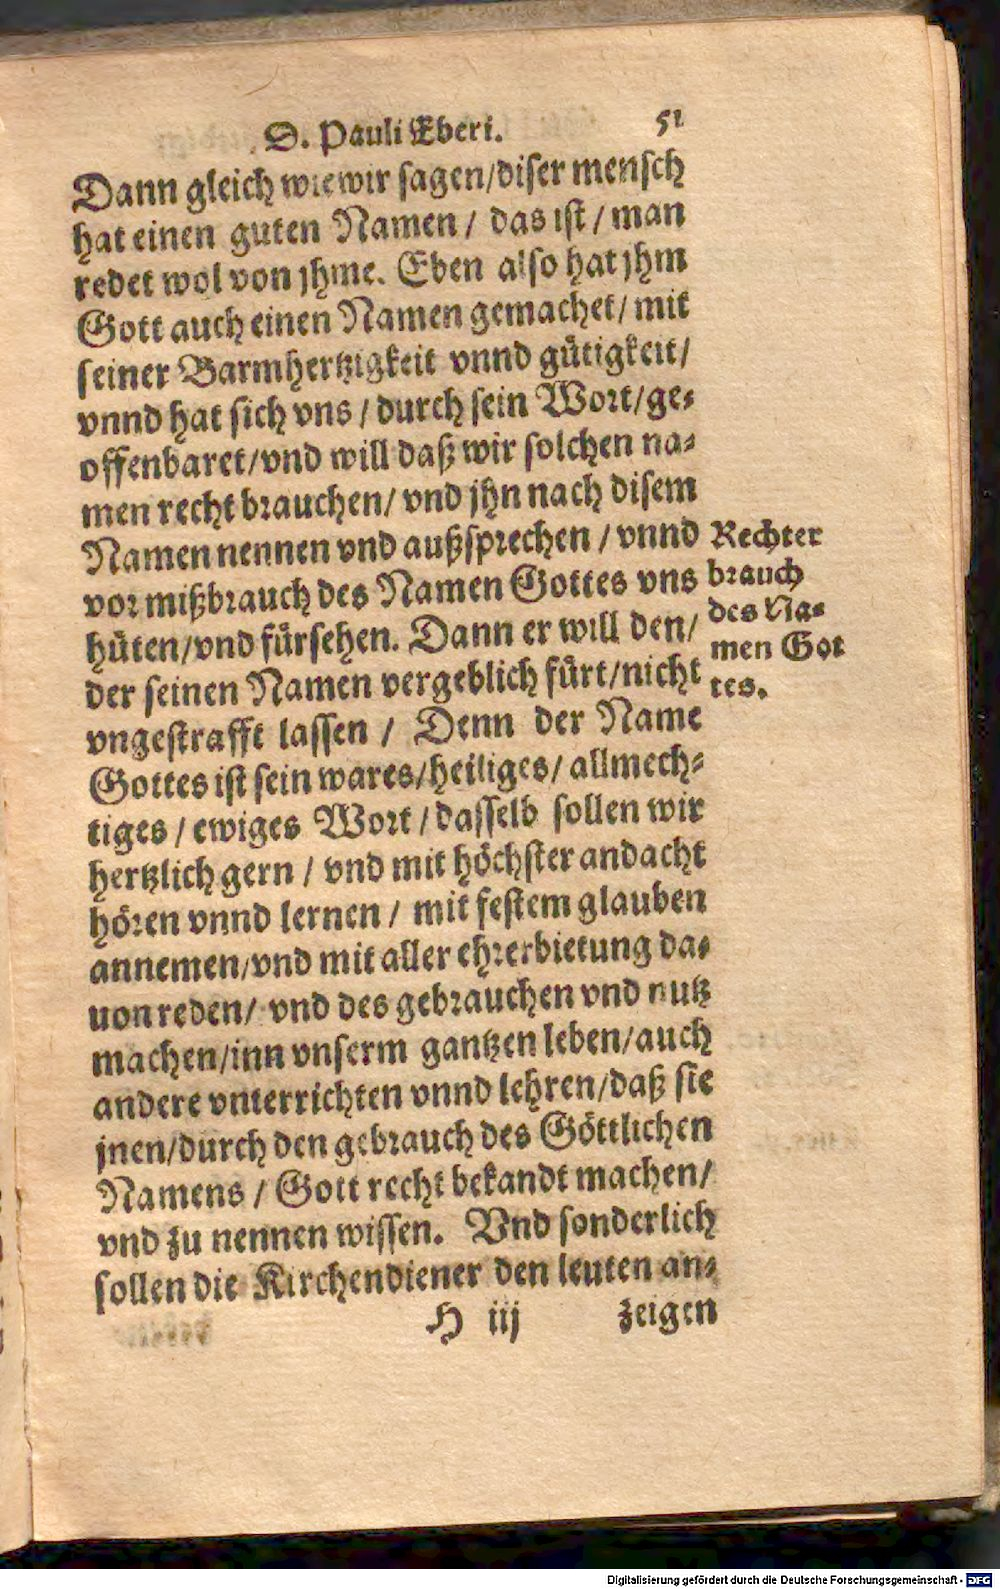 D. Pauli Eberi. 51
Dann gleich wie wir sagen/diser mensch
hat einen guten Namen / das ist / man
redet wol von jhme. Eben also hat jhm
Gott auch einen Namen gemachet/ mit
seiner Barmhertzigkeit vnnd gütigkeit/
vnnd hat sich vns / durch sein Wort/ge-
offenbaret/vnd will daß wir solchen na-
men recht brauchen/ vnd jhn nach disem
Namen nennen vnd außsprechen / vnnd
vor mißbrauch des Namen Gottes vns
hüten/vnd fürsehen. Dann er will den/
der seinen Namen vergeblich fürt/nicht
vngestrafft lassen / Denn der Name
Gottes ist sein wares/heiliges/ allmech-
tiges / ewiges Wort / dasselb sollen wir
hertzlich gern / vnd mit höchster andacht
hören vnnd lernen / mit festem glauben
annemen/vnd mit aller ehrerbietung da-
uon reden/ vnd des gebrauchen vnd nutz
machen/inn vnserm gantzen leben/auch
andere vnterrichten vnnd lehren/daß sie
jnen/durch den gebrauch des Göttlichen
Namens / Gott recht bekandt machen/
vnd zu nennen wissen. Vnd sonderlich
sollen die Kirchendiener den leuten an-
H iij zeigen
Rechter
brauch
des Na-
men Got
tes.
Digitalisierung gefördert durch die Deutsche Forschungsgemeinschaft - DFG